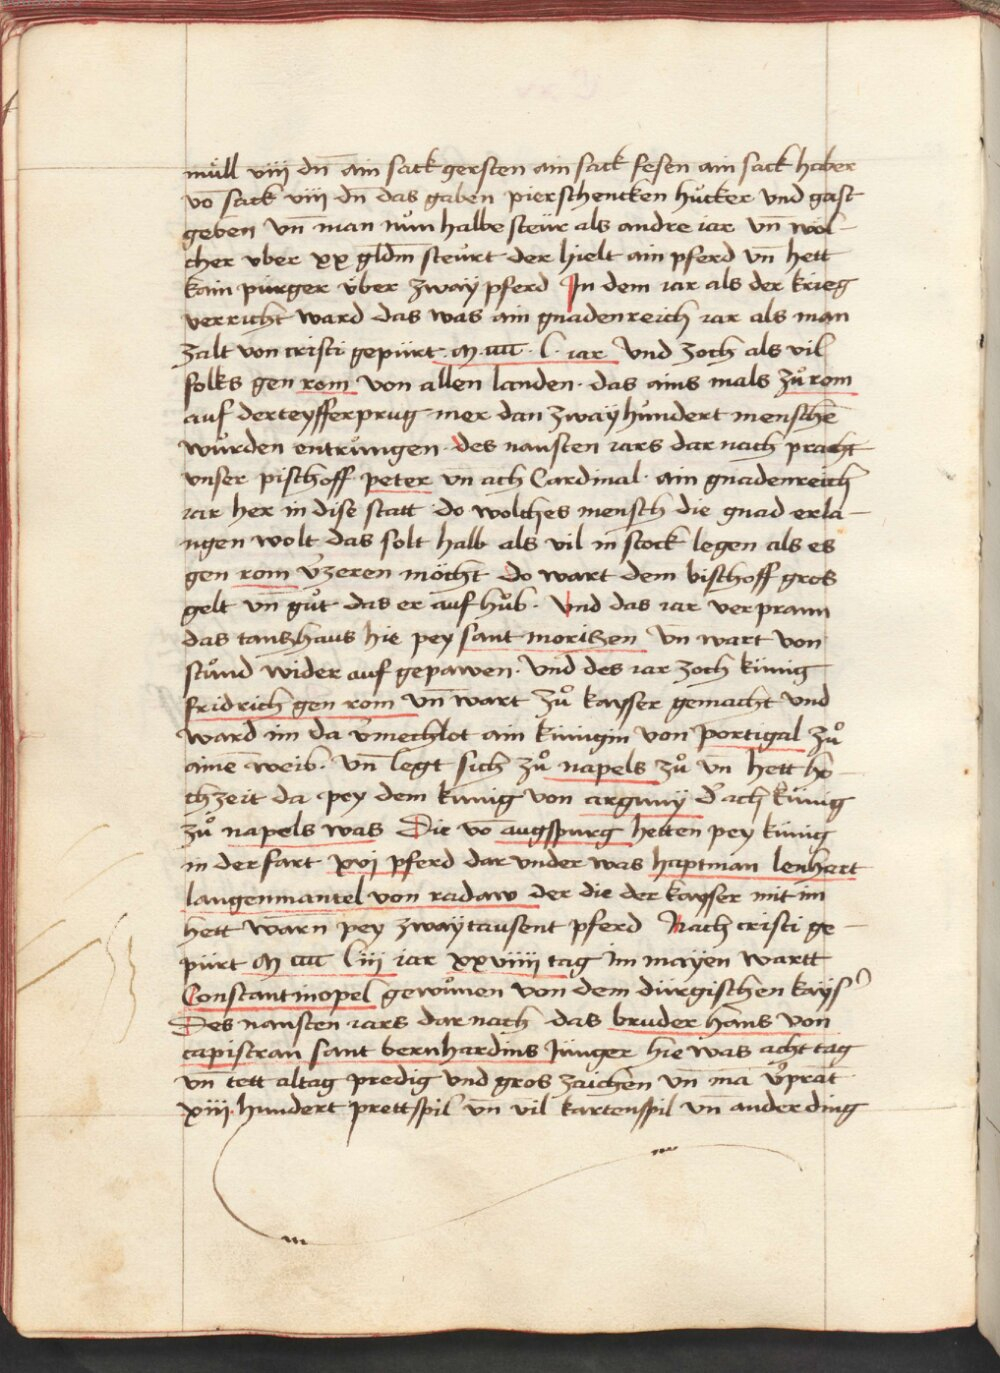 mu̇ll viii dn̄ ain sack gersten ain sack fesen ain sack haber
vō sack viii dn̄ das gaben pierschencken hu̇cker vnd gast
geben vn̄ man nu̇n halbe steu̇r als andre iar vn̄ wöl-
cher vber xx gldm̄ steu̇rt der hielt ain pferd vn̄ hett
kain pu̇rger u̇ber zwaÿ pferd In dem iar als der krieg
verricht ward das was ain gnadenreich iar als man
zalt von cristi gepu̇rt · M · cccc · l · iar Vnd zoch als vil
folks gen rom von allen landen · das ains mals zů rom
auf der teyfferprug mer dan zwaÿ hůndert menschē
wůrden entrůngen · des nausten iars dar nach pracht
vnser pischoff peter vn̄ ach Cardinal · ain gnadenreich
iar her in dise statt do wolches mensch die gnad erla-
ngen wolt das solt halb als vil in stock legen als es
gen rom v̉zeren möcht do wart dem bischoff gros
gelt vn̄ gůt das er auf hůb · Vnd das iar verprann
das tantzhaus hie pey sant moritzen vn̄ wart von
stůnd wider auf gepawen · Vnd des iar zoch ku̇nig
fridrich gen rom vn̄ wart zů kaysser gemacht vnd
ward im da v̉mechlot ain ku̇nigin von portigal zů
ainē weib · vn̄ legt sich zů napels zů vn̄ hett ho-
chzeit da pey dem ku̇nig von arguny d̉ ach ku̇nig
zů napels was Die vō augspurg hetten pey ku̇nig
in der fart xvi pferd dar vnder was haptman lenhert
langenmantel von radaw der die der kaysser mit im
hett warn pey zwaÿ tausent pferd Nach cristi ge-
pu̇rt M cccc liii iar xxviiii tag im mayen wartt
Constantinopel gewůnen von dem du̇rgischen kays̉
Des nausten iars dar nach das bruder hans von
capistran sant bernhardins Ju̇nger hie was acht tag
vn̄ tett altag predig vnd gros zaichen vn̄ mā v̉prāt
xiii hundert prettspil vn̄ vil kartenspil vn̄ ander ding